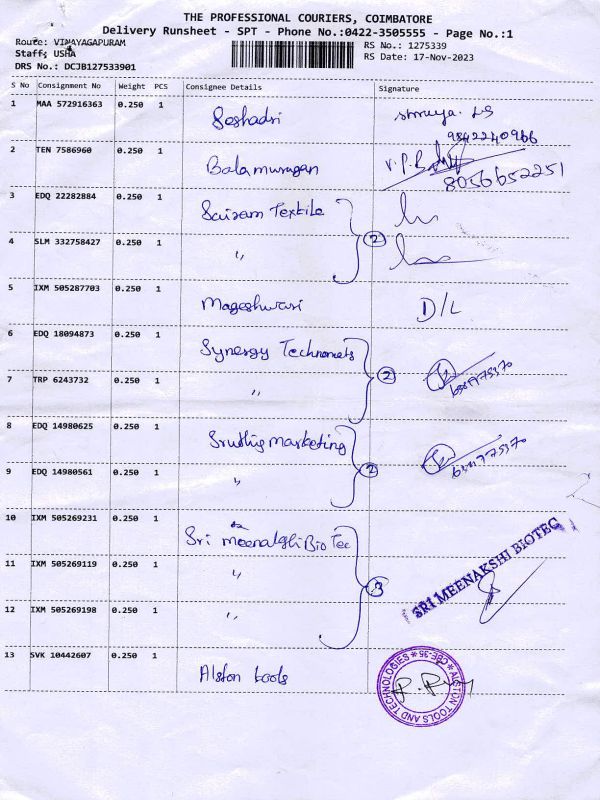 THE PROFESSIONAL COURIERS, COIMBATORE
Delivery Runsheet - SPT - Phone No.:0422-3505555 - Page No.:1
Route: VINAYAGAPURAM
Staff: USHA
DRS No.: DCJB127533901
RS No.: 1275339
RS Date: 17-Nov-2023
S No Consignment No Weight PCS Consignee Details Signature
1 MAA 572916363 0.250 1 Seshadri
9842240966
2 TEN 7586960 0.250 1 Balamurugan V.P.B
8056652251
3 EDQ 22282884 0.250 1 Sairam Textile
4 SLM 332758427 0.250 1 " 2
5 IXM 505287703 0.250 1 Mageshwari D/L
6 EDQ 18094873 0.250 1 Synergy
7 TRP 6243732 0.250 1 " 2
8 EDQ 14980625 0.250 1 marketing
9 EDQ 14980561 0.250 1 " 2
10 IXM 505269231 0.250 1 Sri Bio Tec
11 IXM 505269119 0.250 1 " 3
12 IXM 505269198 0.250 1 "
SRI MEENAKSHI BIOTEC
13 SVK 10442607 0.250 1 Alston tools
ALSTON TOOLS AND TECHNOLOGIES * CBE-35 *